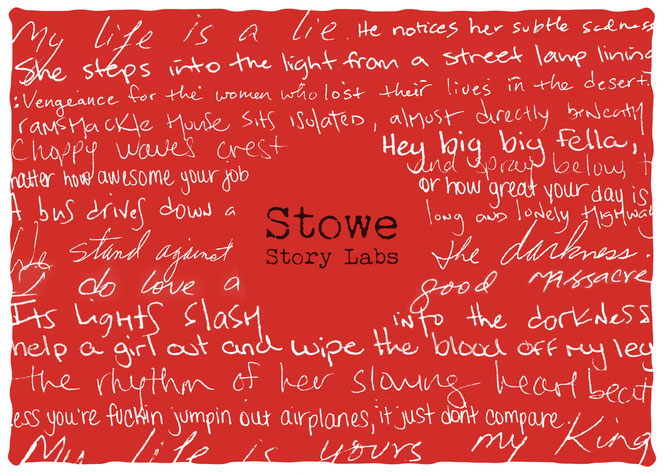 My life is a lie. He notices her subtle sadness
She steps into the light from a street lamp lining
: Vengeance for the women who lost their lives in the desert.
ramshackle House sits isolated, almost directly beneath
Choppy waves crest Hey big big fella,
and spray below, t
matter how awesome your job or how great your day is
A bus drives down a long and lonely Highway
Stowe
Story Labs
We stand against the darkness.
I do love a good massacre
Its lights slash into the darkness
help a girl out and wipe the blood off my leg
the rhythm of her slowing heart beat
ess you're fuckin jumpin out airplanes, it just dont compare.
My life is yours my King